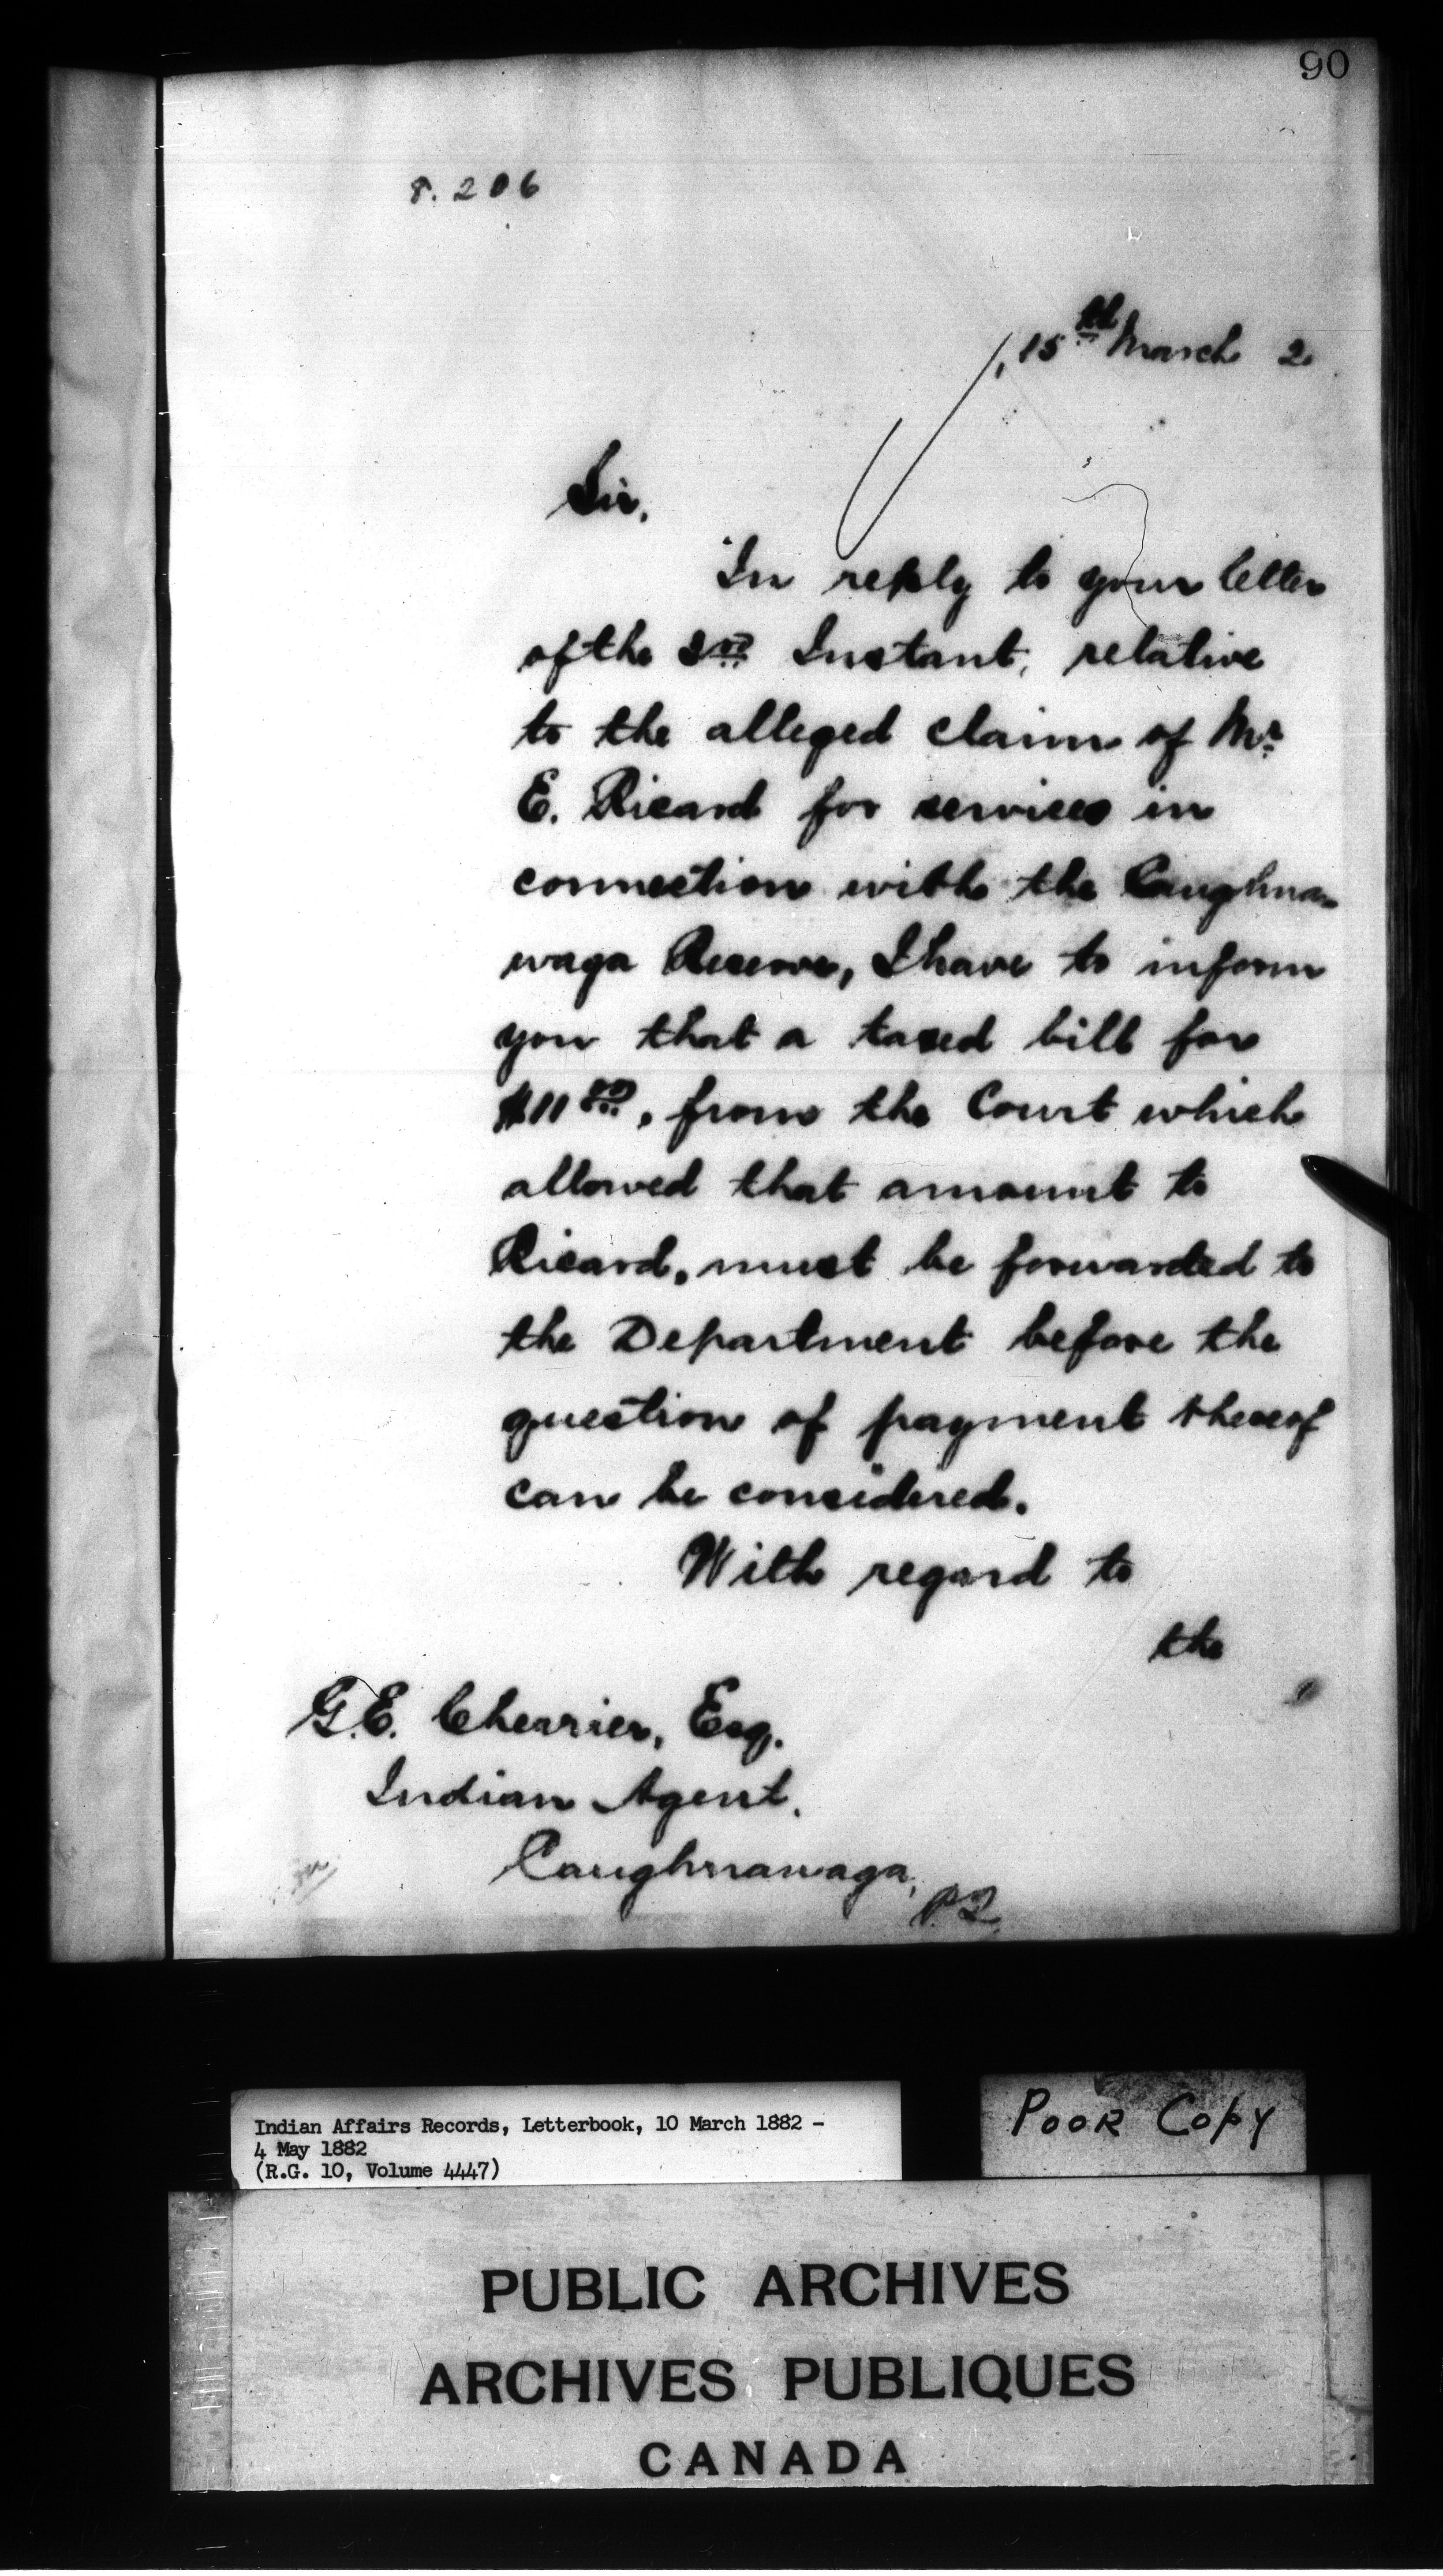 90
8.206
15th March 2
Sir,
In reply to your letter
of the Instant, relative
to the alleged claim of Mr
E. Ricard for services in
connection with the Caughna-
waga Reserve, I have to inform
you that a taxed bill for
$11.00, from the Court which
allowed that amount to
Ricard, must be forwarded to
the Department before the
question of payment thereof
can be considered.
With regard to
the
G.E. Cherrier, Esq.
Indian Agent,
Caughnawaga,
P.Q.
Indian Affairs Records, Letterbook, 10 March 1882 -
4 May 1882
(R.G. 10, Volume 4447)
POOR COPY
PUBLIC ARCHIVES
ARCHIVES PUBLIQUES
CANADA